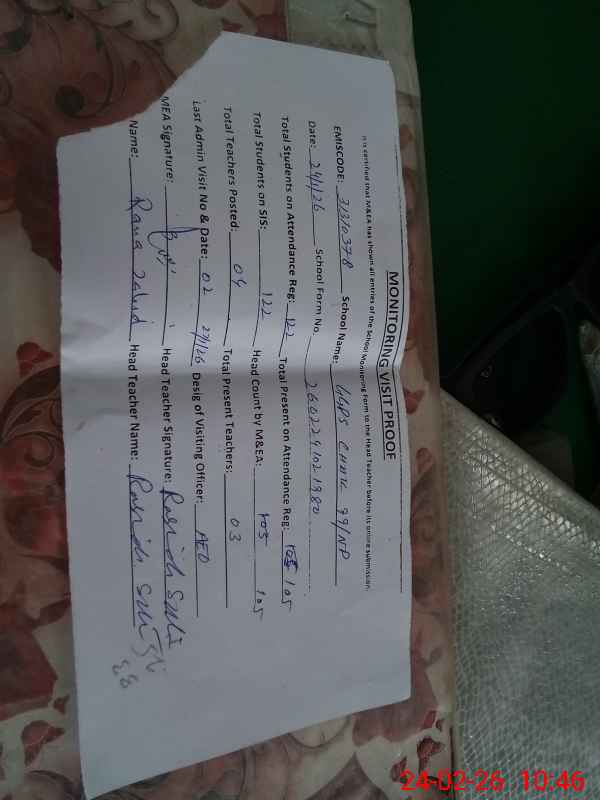 MONITORING VISIT PROOF
It is certified that M&EA has shown all entries of the School Monitoring Form to the Head Teacher before its online submission.
EMISCODE: 31310378 School Name: GGPS CHAK 99/NP
Date: 24/1/26 School Form No. 2602241021980
Total Students on Attendance Reg: 122 Total Present on Attendance Reg: 105 105
Total Students on SIS: 122 Head Count by M&EA: 105 105
Total Teachers Posted: 04 Total Present Teachers: 03
Last Admin Visit No & Date: 02 27/1/26 Desig of Visiting Officer: AEO
MEA Signature: Head Teacher Signature:
Name: Rana Head Teacher Name:
24-02-26 10:46